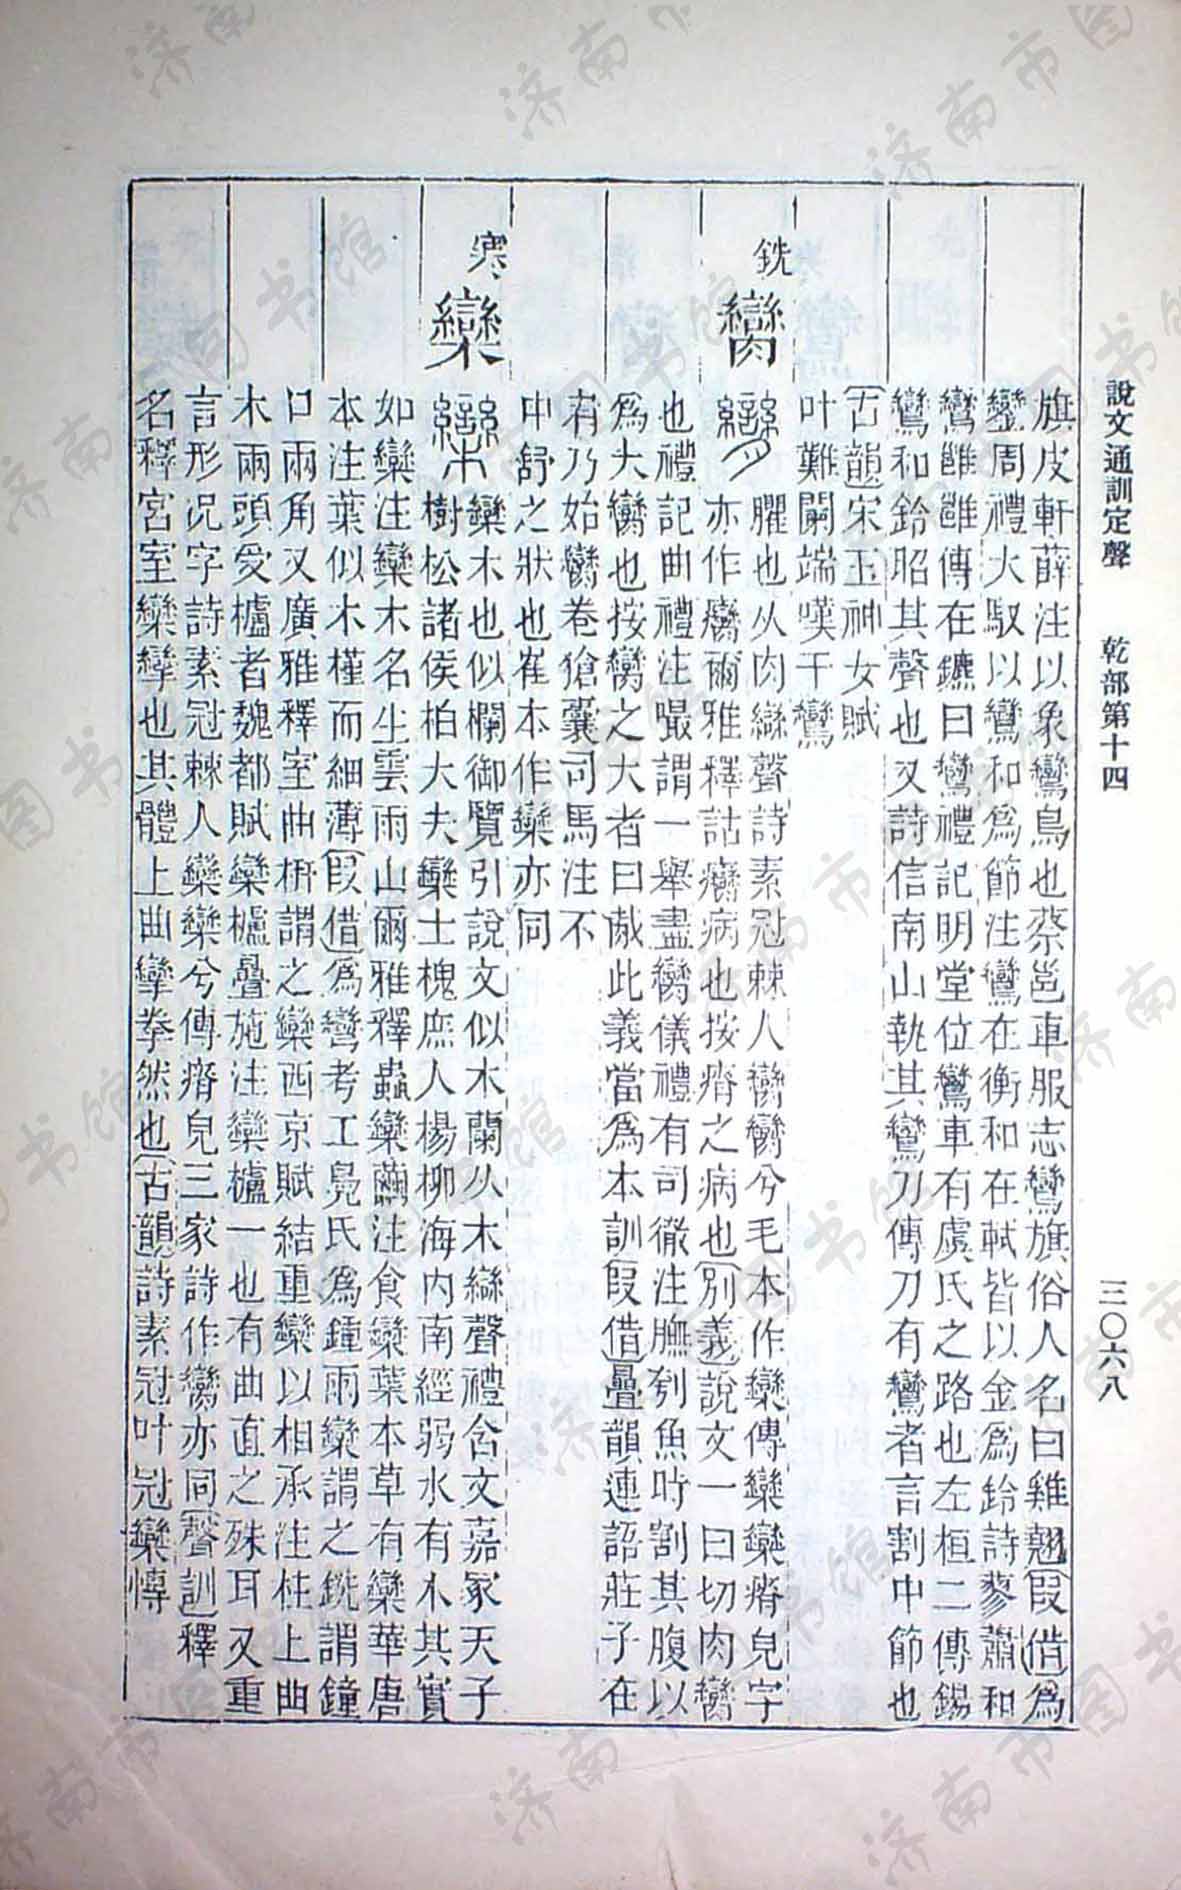 說文通訓定聲　乾部第十四　三〇六八
旗皮軒薛注以象鸞鳥也蔡邕車服志鸞旗俗人名曰雞翹叚借為
鑾周禮大馭以鸞和為節注鸞在衡和在軾皆以金為鈴詩蓼蕭和
鸞雝雝傳在鑣曰鸞禮記明堂位鸞車有虞氏之路也左桓二傳錫
鸞和鈴昭其聲也又詩信南山執其鸞刀傳刀有鸞者言割中節也
古韻宋玉神女賦
叶難闌端嘆干鸞
銑
臠
臞也从肉䜌聲詩素冠棘人臠臠兮毛本作欒傳欒欒瘠皃字
亦作癵爾雅釋詁癵病也按瘠之病也別義說文一曰切肉臠
也禮記曲禮注嘬謂一舉盡臠儀禮有司徹注膴刳魚時割其腹以
為大臠也按臠之大者曰胾此義當為本訓叚借疊韻連語莊子在
有乃始臠卷獊囊司馬注不
申舒之狀也崔本作欒亦同
寒
欒
欒木也似欄御覽引說文似木蘭从木䜌聲禮含文嘉冢天子
樹松諸侯柏大夫欒士槐庶人楊柳海內南經弱水有木其實
如欒注欒木名生雲雨山爾雅釋蟲欒繭注食欒葉本草有欒華唐
本注葉似木槿而細薄叚借為彎考工鳧氏為鍾兩欒謂之銑謂鐘
口兩角又廣雅釋室曲枅謂之欒西京賦結重欒以相承注柱上曲
木兩頭受櫨者魏都賦欒櫨疊施注欒櫨一也有曲直之殊耳又重
言形況字詩素冠棘人欒欒兮傳瘠皃三家詩作臠亦同聲訓釋
名釋宮室欒攣也其體上曲攣拳然也古韻詩素冠叶冠欒慱